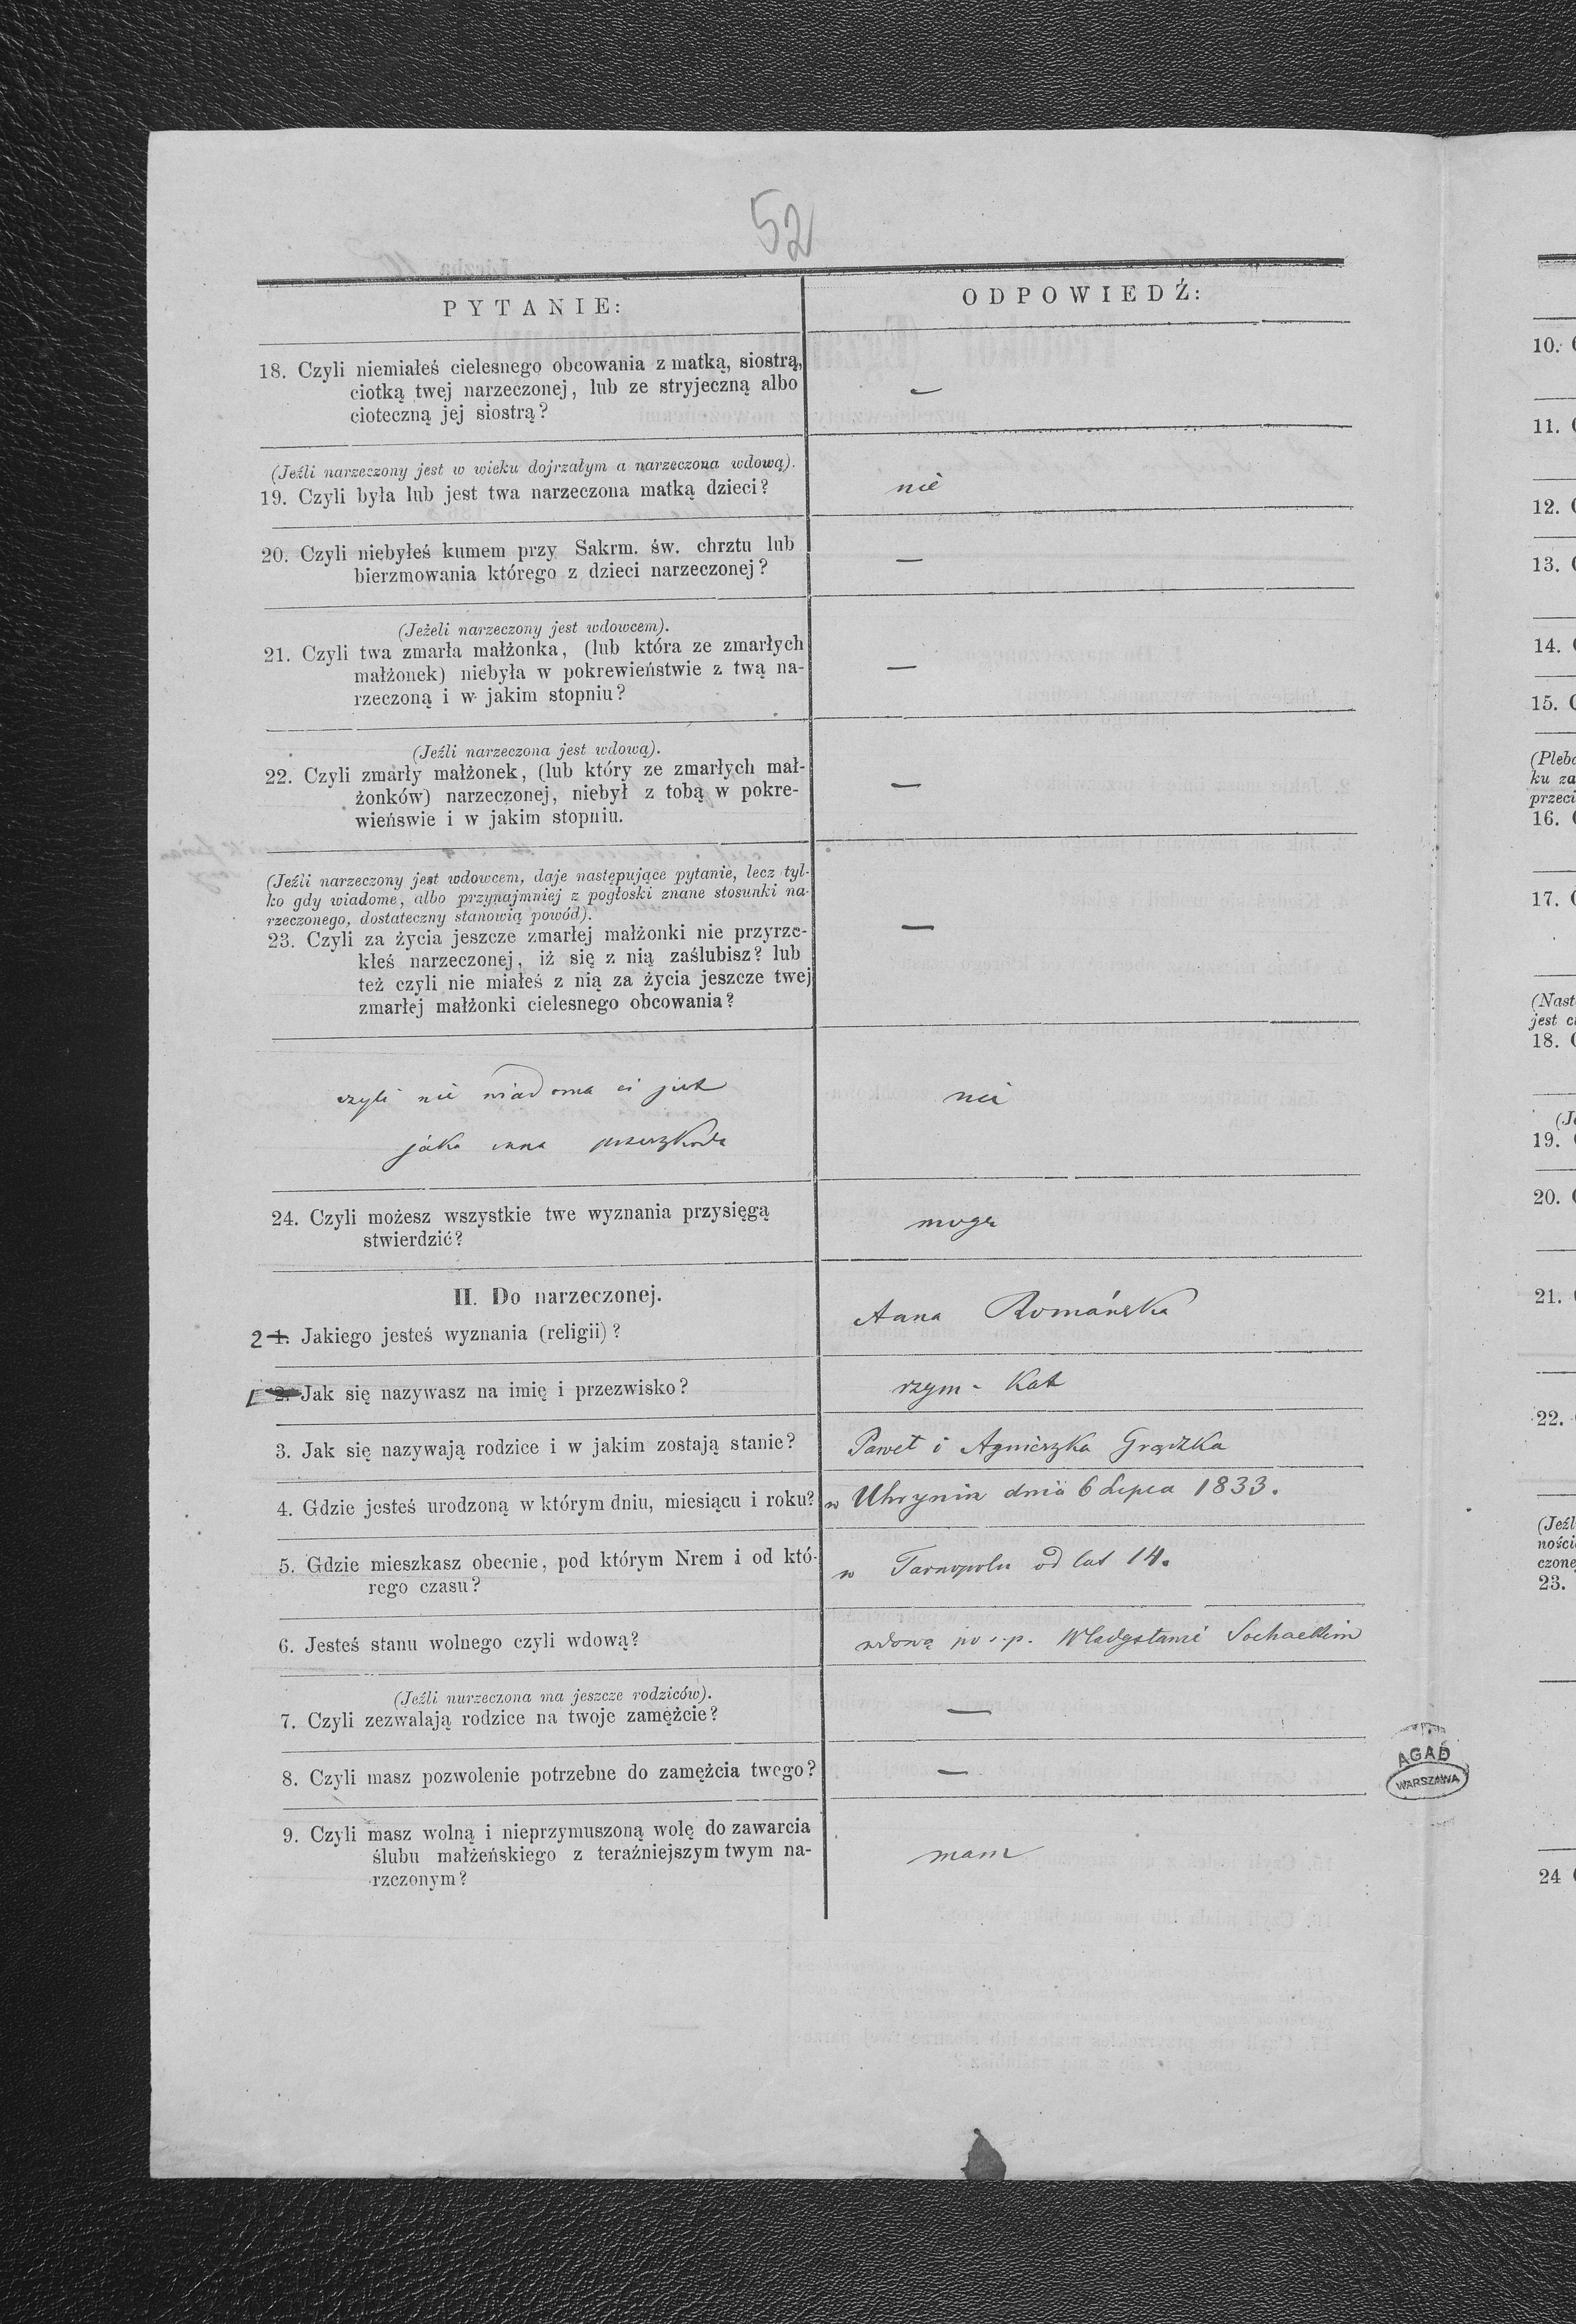 52
PYTANIE:
ODPOWIEDŹ:
18. Czyli niemiałeś cielesnego obcowania z matką, siostrą,
ciotką twej narzeczonej, lub ze stryjeczną albo
cioteczną jej siostrą?
—
(Jeźli narzeczony jest w wieku dojrzałym a narzeczona wdową).
19. Czyli była lub jest twa narzeczona matką dzieci?
nie
20. Czyli niebyłeś kumem przy Sakrm. św. chrztu lub
bierzmowania którego z dzieci narzeczonej?
—
(Jeżeli narzeczony jest wdowcem).
21. Czyli twa zmarła małżonka, (lub która ze zmarłych
małżonek) niebyła w pokrewieństwie z twą na-
rzeczoną i w jakim stopniu?
—
(Jeźli narzeczona jest wdową).
22. Czyli zmarły małżonek, (lub który ze zmarłych mał-
żonków) narzeczonej, niebył z tobą w pokre-
wieńswie i w jakim stopniu.
—
(Jeźli narzeczony jest wdowcem, daje następujące pytanie, lecz tyl-
ko gdy wiadome, albo przynajmniej z pogłoski znane stosunki na-
rzeczonego, dostateczny stanowią powód).
23. Czyli za życia jeszcze zmarłej małżonki nie przyrze-
kłeś narzeczonej, iż się z nią zaślubisz? lub
też czyli nie miałeś z nią za życia jeszcze twej
zmarłej małżonki cielesnego obcowania?
—
czyli nie wiadoma ci jest
jaka inna przeszkoda
nie
24. Czyli możesz wszystkie twe wyznania przysięgą
stwierdzić?
mogę
II. Do narzeczonej.
2 1. Jakiego jesteś wyznania (religii)?
Anna Romańska
1 2. Jak się nazywasz na imię i przezwisko?
rzym - Kat
3. Jak się nazywają rodzice i w jakim zostają stanie?
Paweł i Agnieszka Grądzka
4. Gdzie jesteś urodzoną w którym dniu, miesiącu i roku?
w Uhrynin dnia 6 Lipca 1833.
5. Gdzie mieszkasz obecnie, pod którym Nrem i od któ-
rego czasu?
w Tarnopolu od lat 14.
6. Jesteś stanu wolnego czyli wdową?
wdową po ś.p. Władysławie Sochackim
(Jeźli nurzeczona ma jeszcze rodziców).
7. Czyli zezwalają rodzice na twoje zamężcie?
—
8. Czyli masz pozwolenie potrzebne do zamężcia twego?
—
9. Czyli masz wolną i nieprzymuszoną wolę do zawarcia
ślubu małżeńskiego z teraźniejszym twym na-
rzczonym?
mam
AGAD
WARSZAWA
10.
11.
12.
13.
14.
15.
ku za
przeci
16.
17.
(Nast
18.
19.
20.
21.
22.
(Jeźl
ności
czone
23.
24